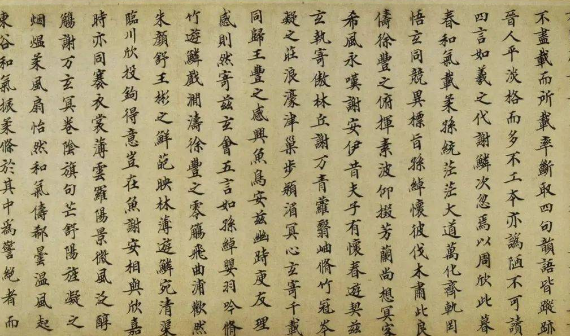 不盡載而所載率斷取四句韻語皆蹤跡
晉人平淡格而多不工本亦譾陋不可讀
四言如羲之代謝鱗次忽焉以周欣此暮
春和氣載柔孫統茫茫大道萬化齊軌罔
悟玄同競異標旨孫綽懷彼伐木肅此良
儔徐豐之俯揮素波仰掇芳蘭尚想冥客
希風永嘆謝安伊昔夫子有懷春遊契茲
玄執寄傲林丘謝万青蘿翳岫脩竹冠岑
凝之莊浪濠津巢步潁湄冥心玄寄千載
同歸王豐之感興魚鳥安茲幽峙庾友理
感則然寄茲玄會五言如孫綽嚶羽吟脩
竹遊鱗戲瀾濤徐豐之零觴飛曲浦歡然
朱顏舒王彬之鮮葩映林薄遊鱗宛清渠
臨川欣投鉤得意豈在魚謝安相與欣嘉
時亦同褰衣裳薄雲羅陽景微風汎醇
觴謝万玄冥卷陰旗句芒舒陽旌凝之
烟熅柔風扇怡然和氣儔郗曇溫風起
東谷和氣候柔條於其中為警絕者而